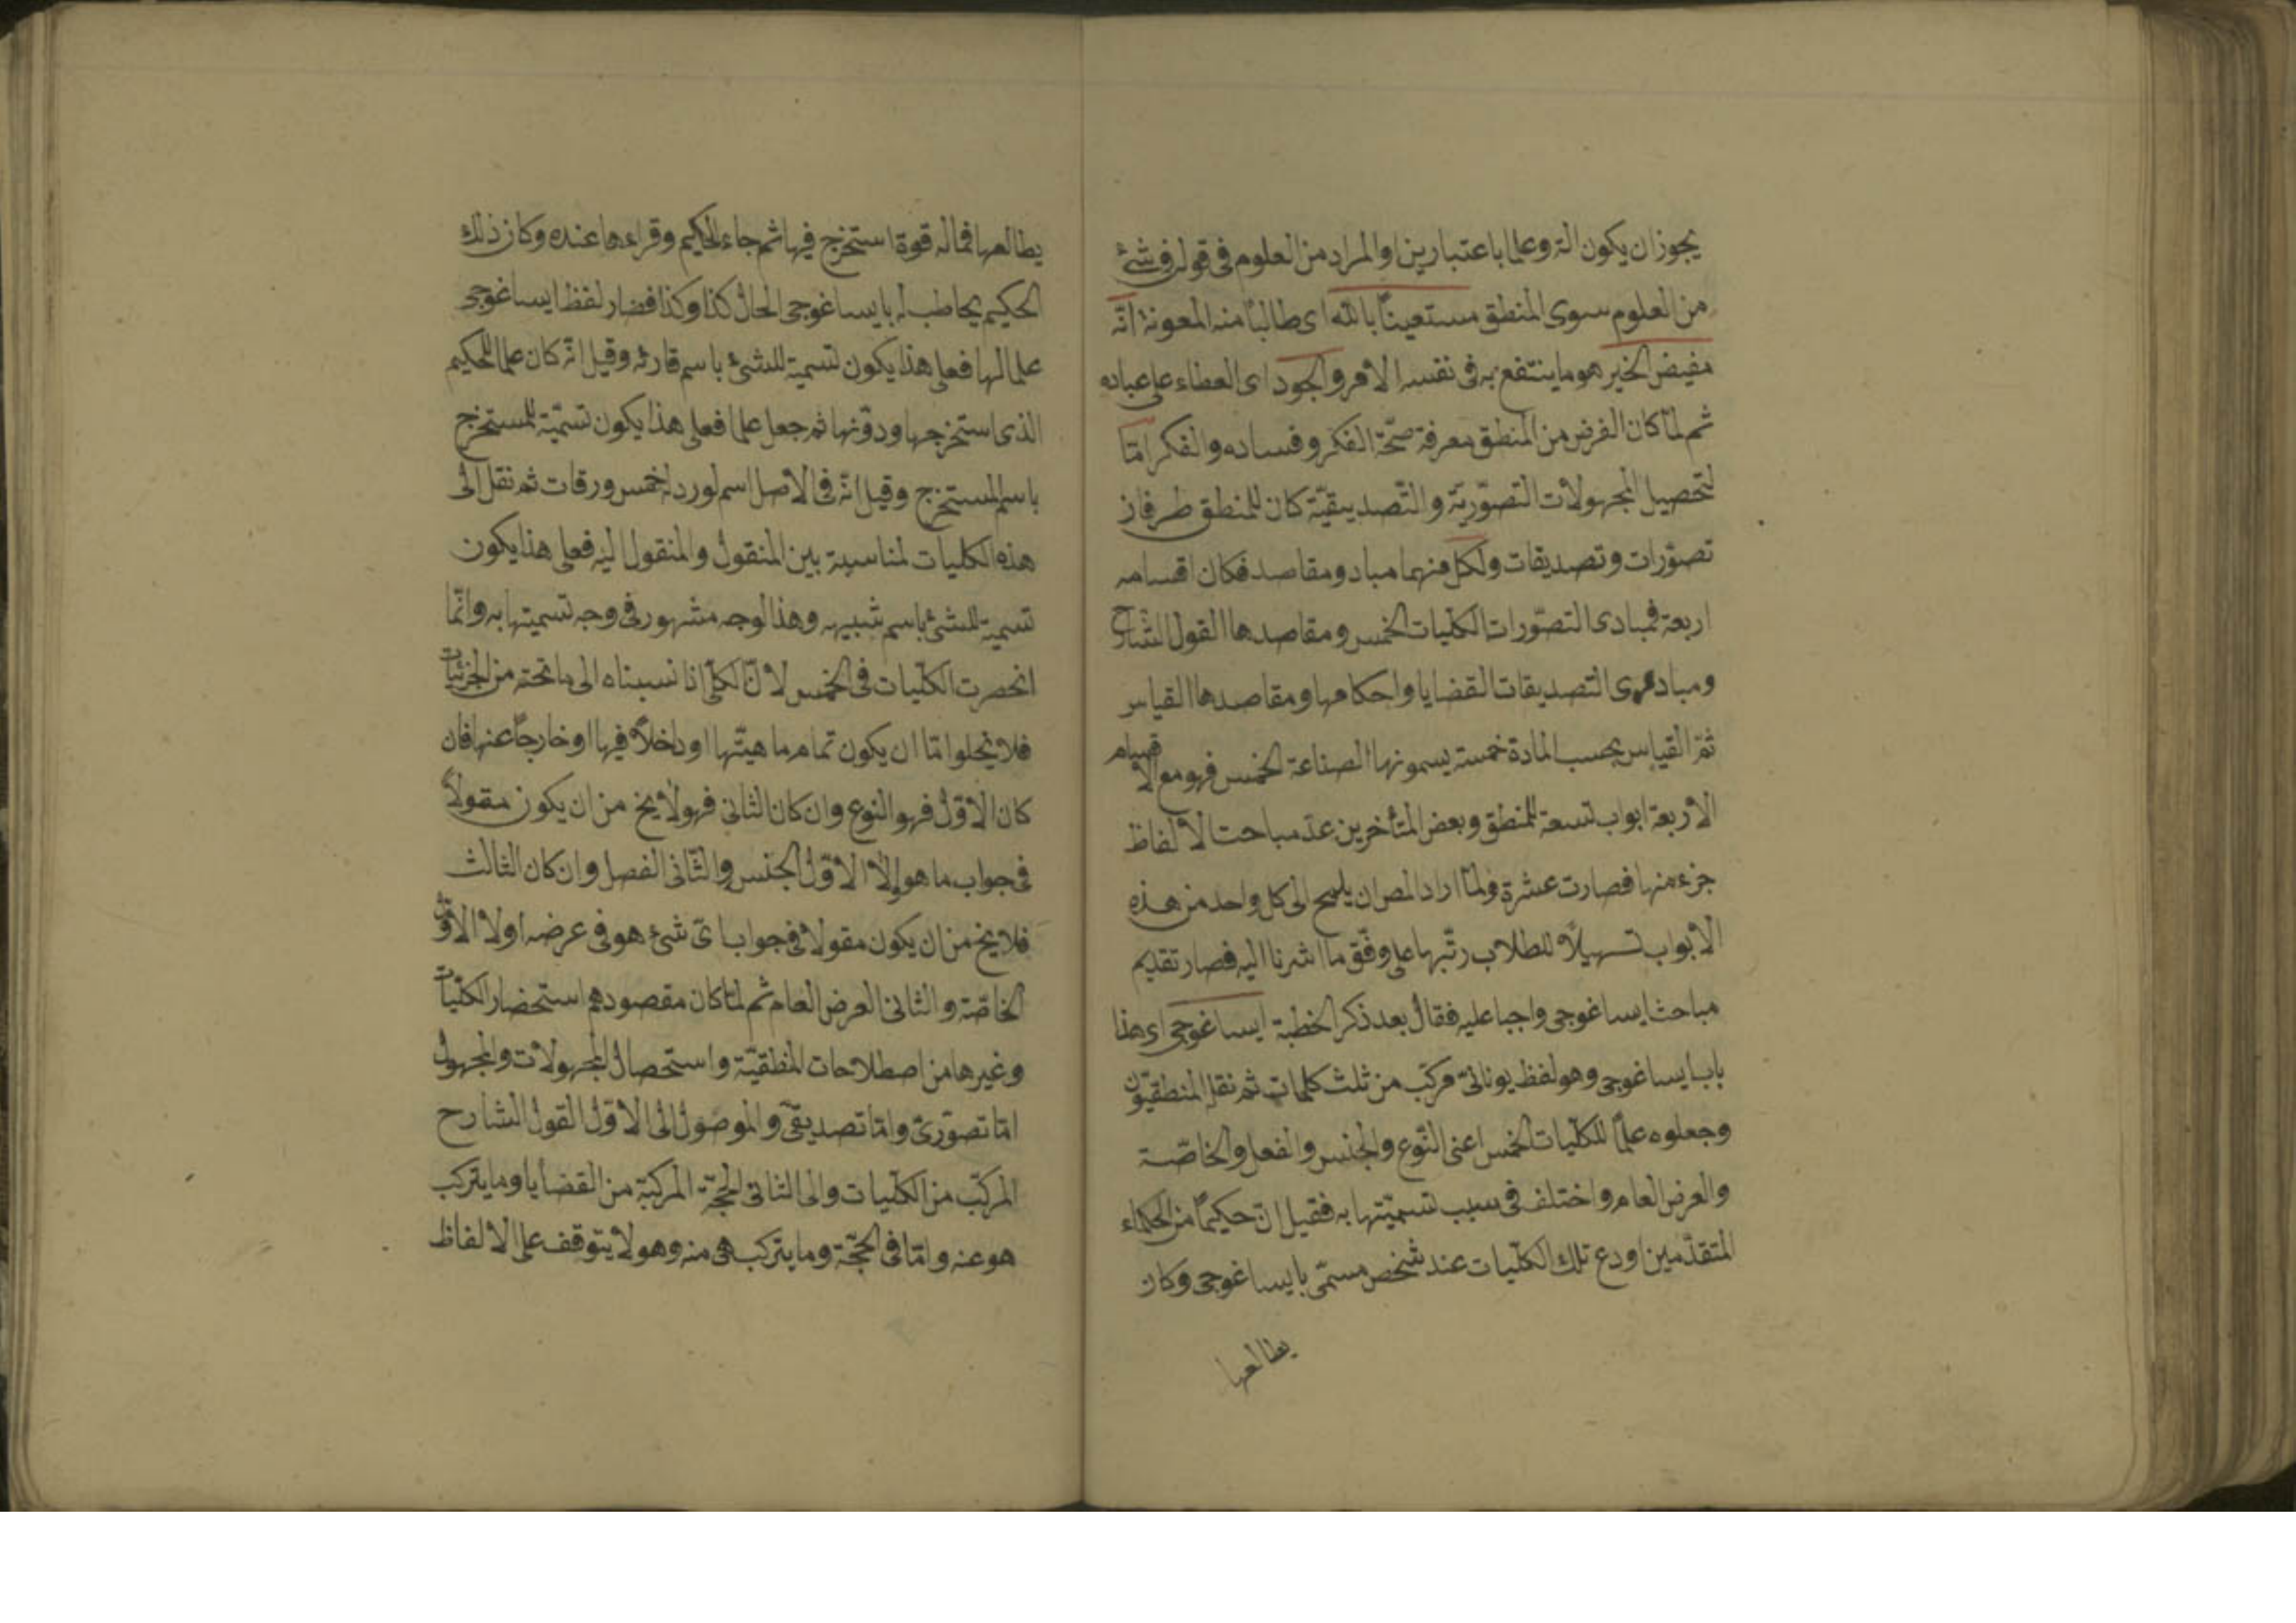 يجوز ان يكون الة وعلما باعتبارين والمراد من العلوم فى قوله فى شئ
من العلوم سوى المنطق مستعيناً بالله اى طالبًا منه المعونة انّه
مفيض الخير هو ما ينتفع به فى نفسه الامر والجود اى العطاء على عباده
ثم لمّا كان الغرض من المنطق معرفة صحّة الفكر وفساده والفكر امّا
لتحصيل المجهولات التصوّريّة والتّصديقيّة كان للمنطق طرفان
تصوّرات وتصديقات ولكل منهما مباد ومقاصد فكان اقسامه
اربعة فمبادى التصوّرات الكلّيات الخمس ومقاصدها القول الشّارح
ومبادى التصديقات القضايا واحكامها ومقاصدها القياس
ثمّ القياس بحسب المادة خمسة يسمونها الصناعة الخمس فهو مع الاقسام
الاربعة ابواب تسعة للمنطق وبعض المتأخرين عدّ مباحث الالفاظ
جزء منها فصارت عشرة ولمّا اراد المص ان يلمح الى كل واحد من هذه
الابواب تسهيلاً للطلاب رتّبها على وفّق ما اشرنا اليه فصار تقديم
مباحث ايساغوجى واجبا عليه فقال بعد ذكر الخطبة ايساغوجى اى هذا
باب ايساغوجى وهو لفظ يونانىّ مركّب من ثلث كلمات ثم نقل المنطقيّون
وجعلوه علمًا للكلّيات الخمس اعنى النّوع والجنس والفعل والخاصّة
والعرض العام واختلف فى سبب تسميّتها به فقيل انّ حكيمًا من الحكماء
المتقدّمين اودع تلك الكلّيات عند شخص مسمّى بايساغوجى وكان
يطالعها
يطالعها فماله قوة استخرج فيها ثم جاء الحكيم وقراءها عنده وكان ذلك
الحكيم يخاطب له بايساغوجى الحال كذا وكذا فضار لفظ ايساغوجى
علما لها فعلى هذا يكون تسمية للشئ باسم قارئه وقيل انّه كان علما للحكيم
الذى استخرجها ودوّنها ثم جعل علما فعلى هذا يكون تسميّة للمستخرج
باسم المستخرج وقيل انّه فى الاصل اسم لورد له خمس ورقات ثم نقل الى
هذه الكليات لمناسبة بين المنقول والمنقول اليه فعلى هذا يكون
تسمية للشئ باسم شبيهه وهذا لوجه مشهور فى وجه تسميتها به وانّما
انحصرت الكلّيات فى الخمس لانّ الكلّى اذا نسبناه الى ما تحته من الجزئيّات
فلا يخلوا امّا ان يكون تمام ماهيّتها او داخلاً فيها او خارجًا عنها فان
كان الاوّل فهو النوع وان كان الثانى فهو لا يخ من ان يكون مقولاً
فى جواب ما هو اولا الاوّل الجنس والثّانى الفصل وان كان الثالث
فلا يخ من ان يكون مقولا فى جواب اىّ شئ هو فى عرضه اولا الاوّل
الخاصّة والثانى العرض العام ثم لمّا كان مقصودهم استحضار الكلّيات
وغيرها من اصطلاحات المنطقيّة واستحصال المجهولات والمجهول
امّا تصوّرىّ وامّا تصديقىّ والموصول الى الاوّل القول الشارح
المركّب من الكلّيات والى الثانى الحجّة المركبة من القضايا وما يتركب
هو عنه وامّا فى الحجّة وما يتركب هى منه وهو لا يتوقف على الالفاظ